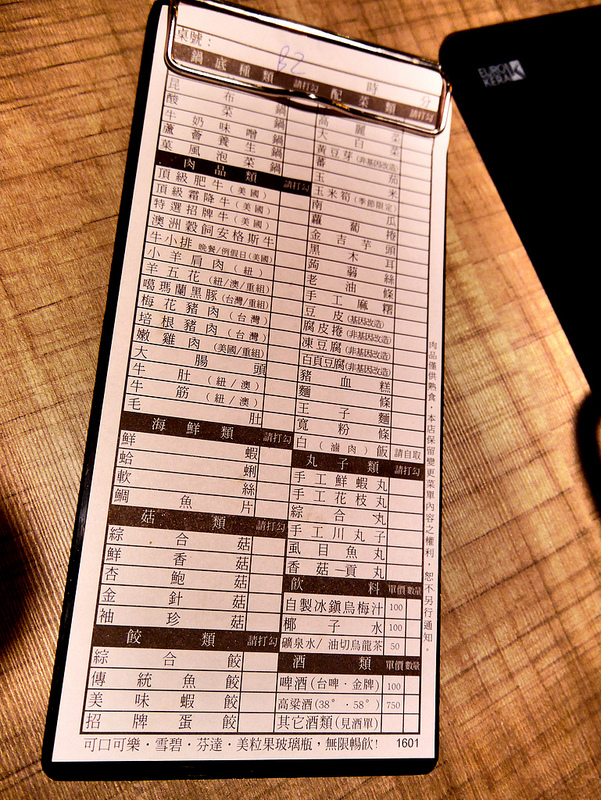 桌號：
B2
時 分
鍋底種類 請打勾
昆布鍋
酸菜鍋
牛奶味噌鍋
蘆薈養生鍋
菓風泡菜鍋
肉品類 請打勾
頂級肥牛(美國)
頂級霜降牛(美國)
特選招牌牛(美國)
澳洲穀飼安格斯牛
牛小排 晚餐/例假日(美國)
小羊肩肉(紐)
羊五花(紐/澳/重組)
噶瑪蘭黑豚(台灣/重組)
梅花豬肉(台灣)
培根豬肉(台灣)
嫩雞肉(美國/重組)
大腸頭
牛肚(紐/澳)
牛筋(紐/澳)
毛肚
海鮮類 請打勾
鮮蝦
蛤蜊
軟絲
鯛魚片
菇類 請打勾
綜合菇
鮮香菇
杏鮑菇
金針菇
袖珍菇
餃類 請打勾
綜合餃
傳統魚餃
美味蝦餃
招牌蛋餃
配菜類 請打勾
高麗菜
大白菜
黃豆芽(非基因改造)
蕃茄
玉米
玉米筍(季節限定)
南瓜
蘿蔔捲
金吉芋頭
黑木耳
蒟蒻絲
老油條
手工麻糬
豆皮(基因改造)
腐皮捲(非基因改造)
凍豆腐(非基因改造)
百頁豆腐(非基因改造)
豬血糕
麵條
王子麵
寬粉條
白(滷肉)飯 請自取
丸子類 請打勾
手工鮮蝦丸
手工花枝丸
綜合丸
手工川丸子
虱目魚丸
香菇貢丸
飲料 單價 數量
自製冰鎮烏梅汁 100
椰子水 100
礦泉水/油切烏龍茶 50
酒類 單價 數量
啤酒(台啤．金牌) 100
高粱酒(38°．58°) 750
其它酒類(見酒單)
可口可樂．雪碧．芬達．美粒果玻璃瓶，無限暢飲! 1601
肉品僅供熟食，本店保留變更菜單內容之權利，恕不另行通知。
EUROKERA